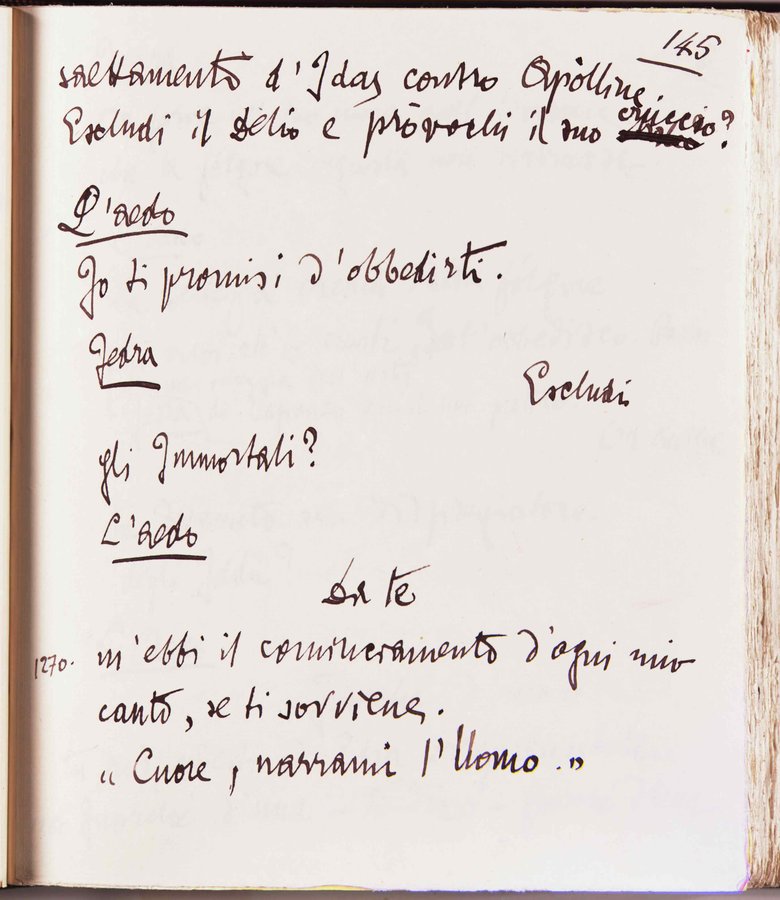 145
saettamento d'Idas contro Apolline.
Escludi il Delio e provochi il suo cruccio?
L'aedo
Io ti promisi d'obbedirti.
Fedra
Escludi
gli Immortali?
L'aedo
Da te
1270. m'ebbi il cominciamento d'ogni mio
canto, se ti sovviene.
« Cuore, narrami l'Uomo. »